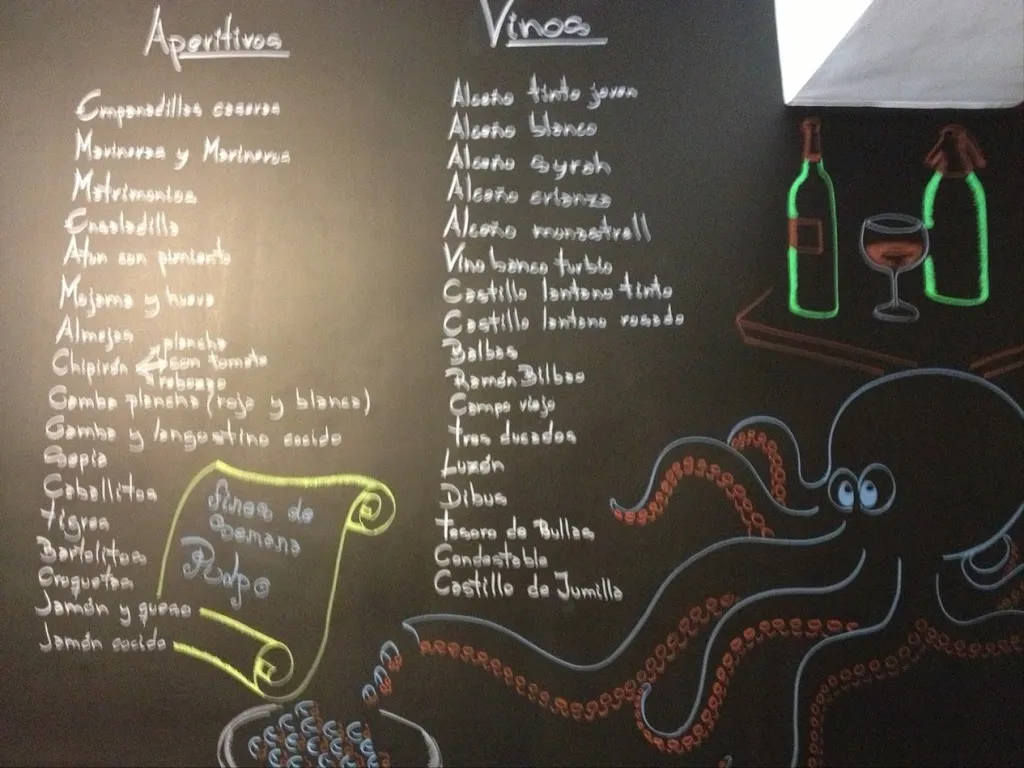 Aperitivos
Empanadillas caseras
Marineras y Marineros
Matrimonios
Ensaladilla
Atun con pimiento
Mojama y hueva
Almejas
Chipirón plancha
con tomate
rebozao
Gamba plancha (roja y blanca)
Gamba y langostino cocido
Sepia
Caballitos
Tigres
Bartolitos
Croquetas
Jamón y queso
Jamón cocido
fines de
semana
Pulpo
Vinos
Alceño tinto joven
Alceño blanco
Alceño syrah
Alceño crianza
Alceño monastrell
Vino banco turbio
Castillo lantano tinto
Castillo lantano rosado
Balbas
Ramón Bilbao
Campo viejo
Tres ducados
Luzón
Dibus
Tesoro de Bullas
Condestable
Castillo de Jumilla